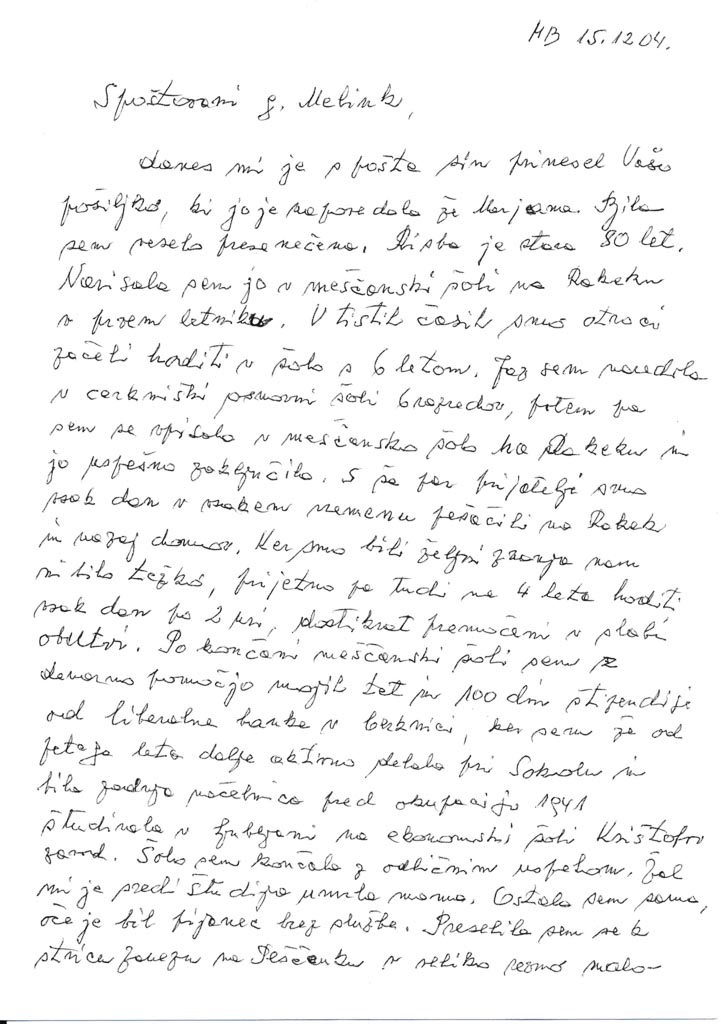 MB 15.12.04.
Spoštovani g. Melink,
danes mi je s pošte sin prinesel Vašo
pošiljko, ki jo je napovedala že Marjana. Bila
sem veselo presenečena. Risba je stara 80 let.
Narisala sem jo v meščanski šoli na Rakeku
v prvem letniku. V tistih časih smo otroci
začeli hoditi v šolo s 6 letom. Jaz sem naredila
v cerkniški osnovni šoli 6 razredov, potem pa
sem se vpisala v meščansko šolo na Rakeku in
jo uspešno zaključila. S še par prijatelji smo
vsak dan v vsakem vremenu pešačili na Rakek
in nazaj domov. Ker smo bili željni znanja nam
ni bilo težko, prijetno pa tudi ne 4 leta hoditi
vsak dan po 2 uri, dostikrat premočeni v slabi
obutvi. Po končani meščanski šoli sem z
denarno pomočjo mojih tet in 100 din štipendije
od liberalne banke v Cerknici, ker sem že od
petega leta dalje aktivno delala pri Sokolu in
bila zadnja načelnica pred okupacijo 1941
študirala v Ljubljani na ekonomski šoli Krištofov
zavod. Šolo sem končala z odličnim uspehom. Žal
mi je sredi študija umrla mama. Ostala sem sama,
oče je bil pijanec brez službe. Preselila sem se k
stricu Janezu na Peščenku v veliko revno malo-